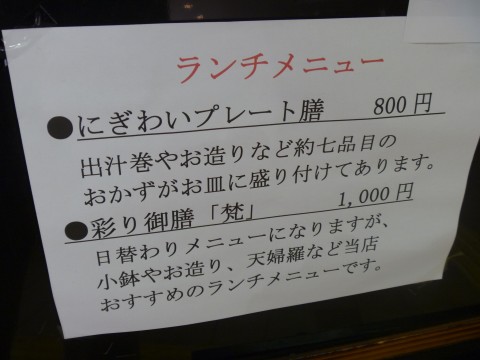 ランチメニュー
●にぎわいプレート膳 800円
出汁巻やお造りなど約七品目の
おかずがお皿に盛り付けてあります。
●彩り御膳「梵」 1,000円
日替わりメニューになりますが、
小鉢やお造り、天婦羅など当店
おすすめのランチメニューです。